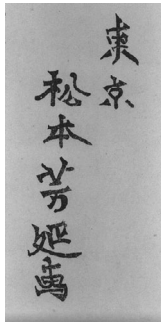 東京
松本芳延